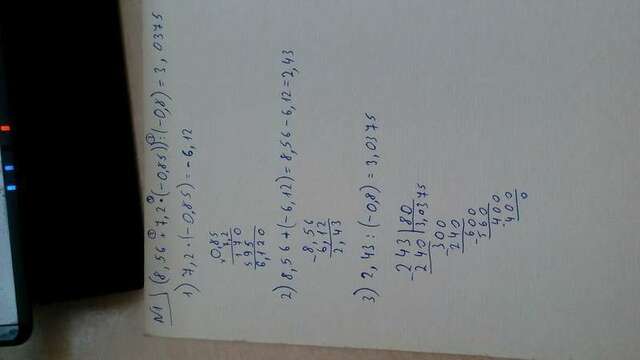 №1 (8,56 + 7,2 · (-0,85)) : (-0,8) = 3,0375
1) 7,2 · (-0,85) = -6,12
0,85
× 7,2
170
595
6,120
2) 8,56 + (-6,12) = 8,56 - 6,12 = 2,43
- 8,56
6,12
2,43
3) 2,43 : (-0,8) = 3,0375
- 243 | 80
240 | 3,0375
- 300
240
- 600
560
- 400
400
0